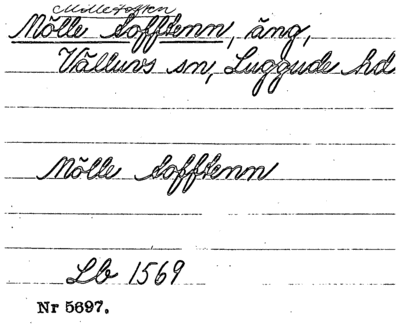 Mölletoften
Mölle tofftenn, äng,
Välluvs sn, Luggude hd
Mölle tofftenn
Lb 1569
Nr 5697.